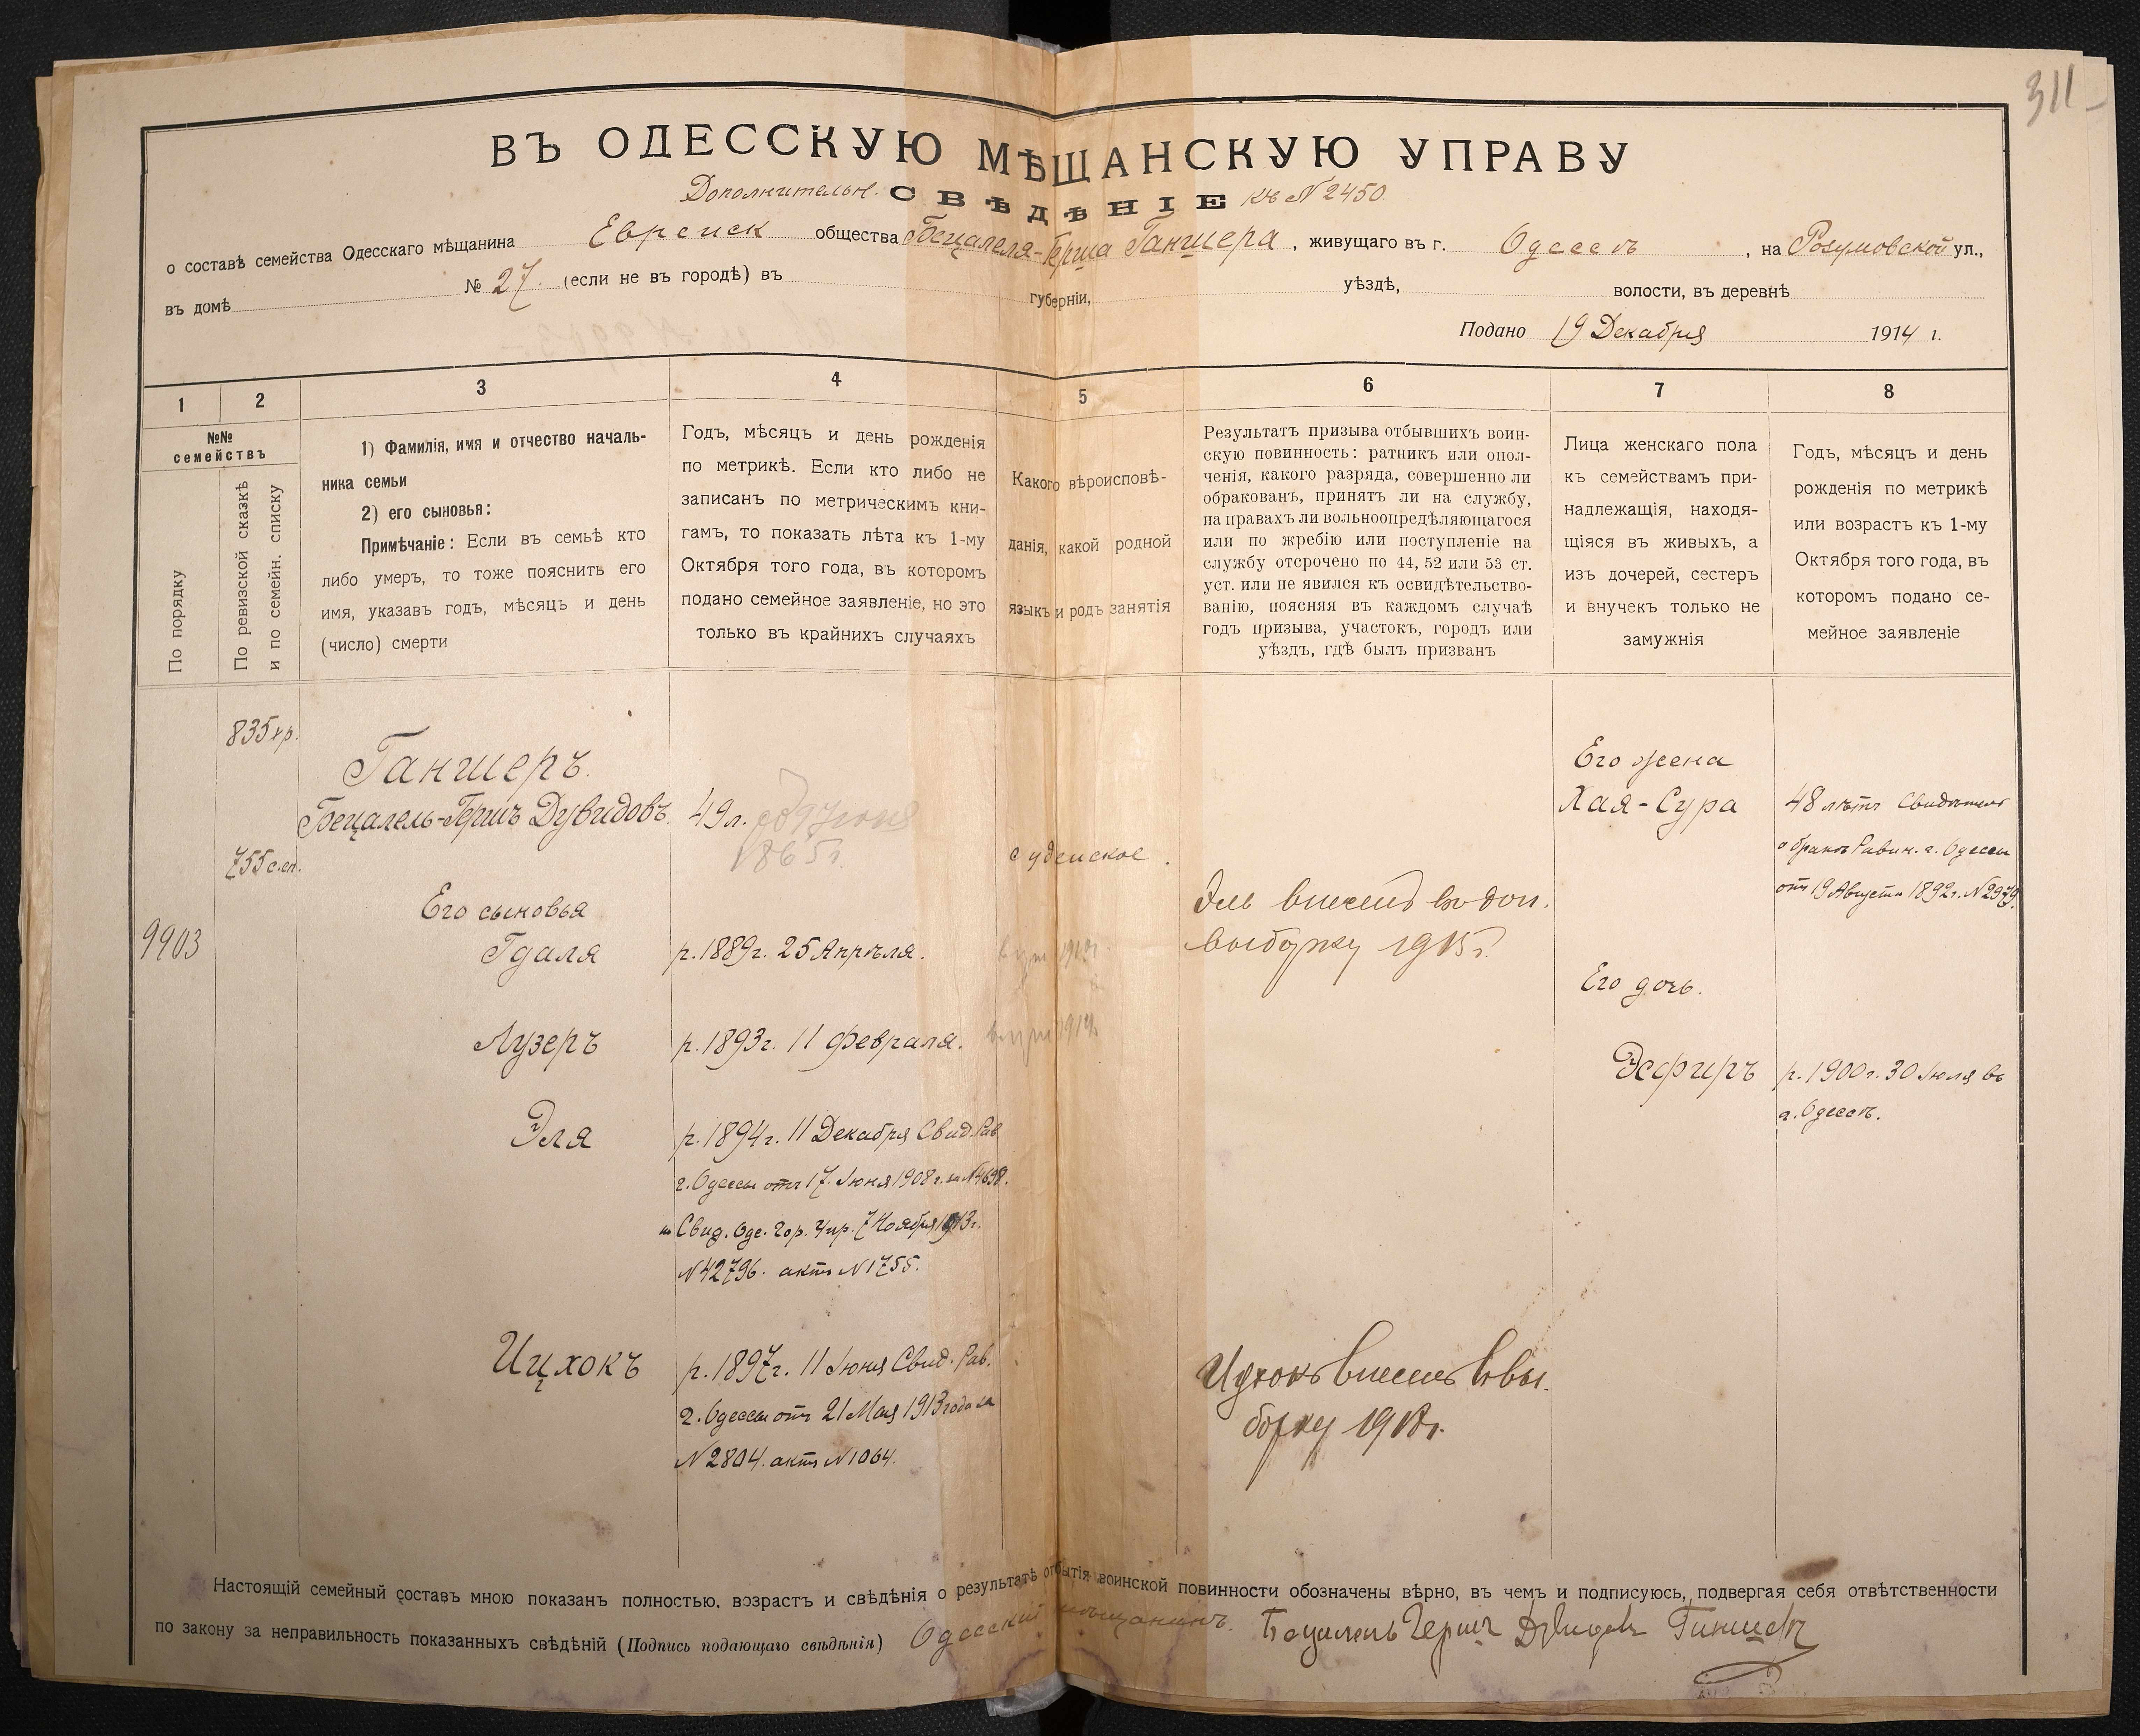 311
ВЪ ОДЕССКУЮ МѢЩАНСКУЮ УПРАВУ
Дополнительн. СВѢДѢНІЕ къ № 2450.
о составѣ семейства Одесскаго мѣщанина Еврейск общества Бецалеля-Герша Ганшера, живущаго въ г. Одессѣ, на Розумовской ул.,
въ домѣ № 27. (если не въ городѣ) въ губерніи, уѣздѣ, волости, въ деревнѣ
Подано 19 Декабря 1914 г.
1 2 3 4 5 6 7 8
№№ семействъ
По порядку
По ревизской сказкѣ
и по семейн. списку
1) Фамилія, имя и отчество началь-
ника семьи
2) его сыновья:
Примѣчаніе: Если въ семьѣ кто
либо умеръ, то тоже пояснить его
имя, указавъ годъ, мѣсяцъ и день
(число) смерти
Годъ, мѣсяцъ и день рожденія
по метрикѣ. Если кто либо не
записанъ по метрическимъ кни-
гамъ, то показать лѣта къ 1-му
Октября того года, въ которомъ
подано семейное заявленіе, но это
только въ крайнихъ случаяхъ
Какого вѣроисповѣ-
данія, какой родной
языкъ и родъ занятія
Результатъ призыва отбывшихъ воин-
скую повинность: ратникъ или опол-
ченія, какого разряда, совершенно ли
обракованъ, принятъ ли на службу,
на правахъ ли вольноопредѣляющагося
или по жребію или поступленіе на
службу отсрочено по 44, 52 или 53 ст.
уст. или не явился къ освидѣтельство-
ванію, поясняя въ каждомъ случаѣ
годъ призыва, участокъ, городъ или
уѣздъ, гдѣ былъ призванъ
Лица женскаго пола
къ семействамъ при-
надлежащія, находя-
щіяся въ живыхъ, а
изъ дочерей, сестеръ
и внучекъ только не
замужнія
Годъ, мѣсяцъ и день
рожденія по метрикѣ
или возрастъ къ 1-му
Октября того года, въ
которомъ подано се-
мейное заявленіе
9903
835 хр.
755 с.сп.
Ганшеръ.
Бецалель-Гершъ Дувидовъ
49 л.
1865 г.
іудейское.
Его сыновья
Гдаля
р. 1889 г. 25 Апрѣля.
Лузеръ
р. 1893 г. 11 Февраля.
Эля
р. 1894 г. 11 Декабря Свид. Рав.
г. Одессы отъ 17 Іюня 1908 г. за № 4698.
Свид. Оде. Гор. Упр. 7 Ноября 1913 г.
№ 42796. актъ № 1755.
Ицхокъ
р. 1897 г. 11 Іюня Свид. Рав.
г. Одессы отъ 21 Мая 1913 года за
№ 2804. актъ № 1064.
Эль внесенъ въ доп.
выборку 1915 г.
Ицхокъ внесенъ въ вы-
борку 1918 г.
Его жена
Хая-Сура
48 лѣтъ Свидѣтел.
о бракѣ Равин. г. Одессы
отъ 19 Августа 1892 г. № 2979.
Его дочь.
Эсфиръ
р. 1900 г. 30 Іюля въ
г. Одессѣ.
Настоящій семейный составъ мною показанъ полностью, возрастъ и свѣдѣнія о результатѣ отбытія воинской повинности обозначены вѣрно, въ чемъ и подписуюсь, подвергая себя отвѣтственности
по закону за неправильность показанныхъ свѣдѣній (Подпись подающаго свѣдѣнія) Одесскій мѣщанинъ. Бецалель Гершъ Дувидовъ Ганшеръ